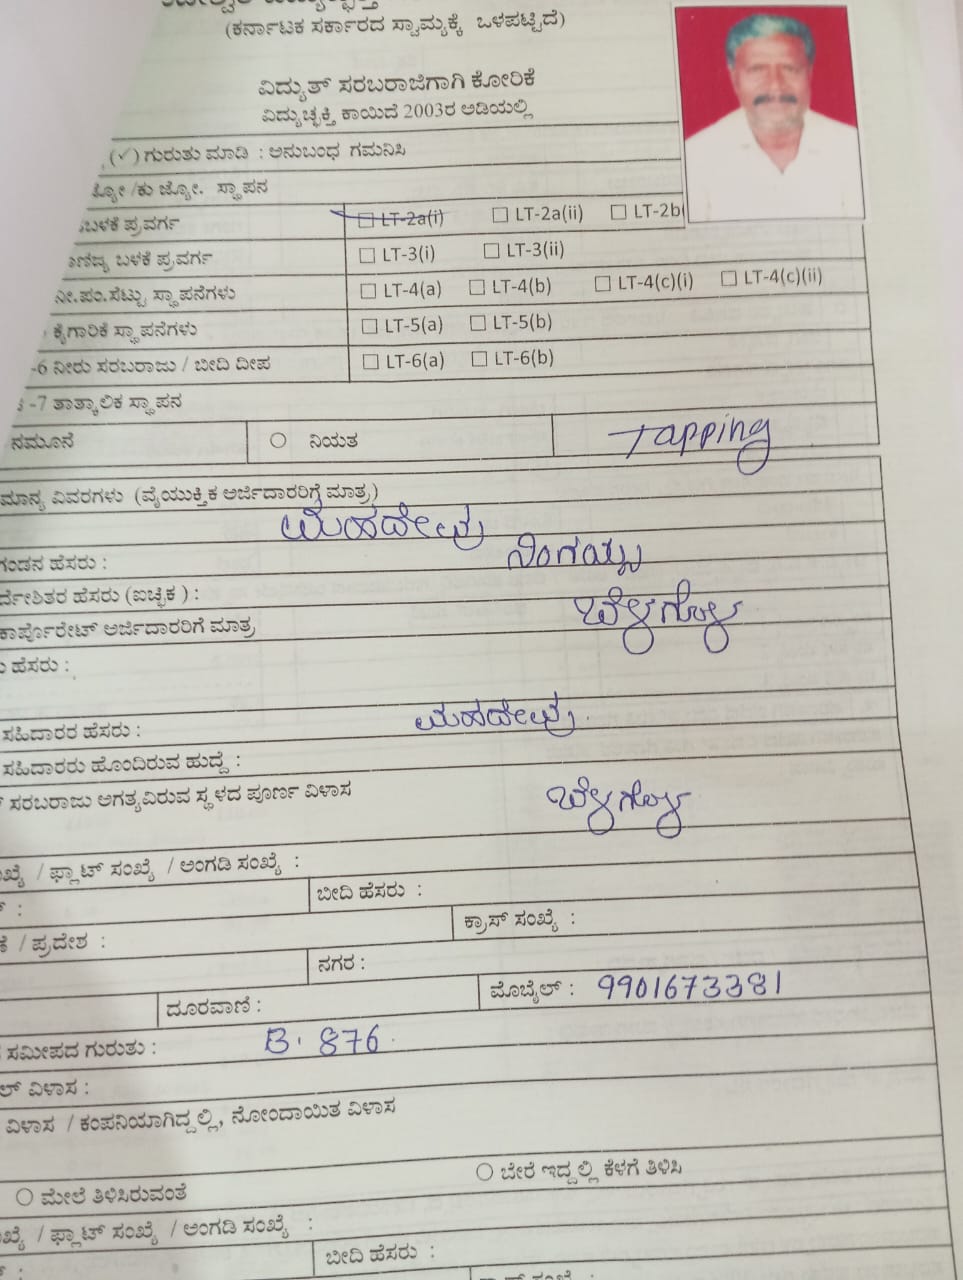 (ಕರ್ನಾಟಕ ಸರ್ಕಾರದ ಸ್ವಾಮ್ಯಕ್ಕೆ ಒಳಪಟ್ಟಿದೆ)
ವಿದ್ಯುತ್ ಸರಬರಾಜಿಗಾಗಿ ಕೋರಿಕೆ
ವಿದ್ಯುಚ್ಛಕ್ತಿ ಕಾಯಿದೆ 2003ರ ಅಡಿಯಲ್ಲಿ
(✓) ಗುರುತು ಮಾಡಿ : ಅನುಬಂಧ ಗಮನಿಸಿ
ಕು ಜ್ಯೋ. ಸ್ಥಾಪನ
ಬಳಕೆ ಪ್ರವರ್ಗ ☐ LT-2a(i) ☐ LT-2a(ii) ☐ LT-2b(
ಬಳಕೆ ಪ್ರವರ್ಗ ☐ LT-3(i) ☐ LT-3(ii)
ನೀ.ಪಂ.ಸೆಟ್ಟು ಸ್ಥಾಪನೆಗಳು ☐ LT-4(a) ☐ LT-4(b) ☐ LT-4(c)(i) ☐ LT-4(c)(ii)
ಕೈಗಾರಿಕೆ ಸ್ಥಾಪನೆಗಳು ☐ LT-5(a) ☐ LT-5(b)
-6 ನೀರು ಸರಬರಾಜು / ಬೀದಿ ದೀಪ ☐ LT-6(a) ☐ LT-6(b)
-7 ತಾತ್ಕಾಲಿಕ ಸ್ಥಾಪನ
ನಮೂನೆ ○ ನಿಯತ Tapping
ಮಾನ್ಯ ವಿವರಗಳು (ವೈಯುಕ್ತಿಕ ಅರ್ಜಿದಾರರಿಗೆ ಮಾತ್ರ)
ಮಹದೇವು
ಗಂಡನ ಹೆಸರು : ನಿಂಗಯ್ಯ
ರ್ದೇಶಿತರ ಹೆಸರು (ಐಚ್ಛಿಕ ) :
ಕಾರ್ಪೊರೇಟ್ ಅರ್ಜಿದಾರರಿಗೆ ಮಾತ್ರ ಬೆಳಗೊಳ
ಹೆಸರು :
ಸಹಿದಾರರ ಹೆಸರು : ಮಹದೇವು
ಸಹಿದಾರರು ಹೊಂದಿರುವ ಹುದ್ದೆ :
ಸರಬರಾಜು ಅಗತ್ಯವಿರುವ ಸ್ಥಳದ ಪೂರ್ಣ ವಿಳಾಸ ಬೆಳಗೊಳ
ಖ್ಯೆ / ಫ್ಲಾಟ್ ಸಂಖ್ಯೆ / ಅಂಗಡಿ ಸಂಖ್ಯೆ :
ಬೀದಿ ಹೆಸರು :
/ ಪ್ರದೇಶ : ಕ್ರಾಸ್ ಸಂಖ್ಯೆ :
ನಗರ :
ದೂರವಾಣಿ : ಮೊಬೈಲ್ : 9901673381
ಸಮೀಪದ ಗುರುತು : B. 876
ಲ್ ವಿಳಾಸ :
ವಿಳಾಸ / ಕಂಪನಿಯಾಗಿದ್ದಲ್ಲಿ, ನೋಂದಾಯಿತ ವಿಳಾಸ
○ ಮೇಲೆ ತಿಳಿಸಿರುವಂತೆ ○ ಬೇರೆ ಇದ್ದಲ್ಲಿ ಕೆಳಗೆ ತಿಳಿಸಿ
ಖ್ಯೆ / ಫ್ಲಾಟ್ ಸಂಖ್ಯೆ / ಅಂಗಡಿ ಸಂಖ್ಯೆ :
ಬೀದಿ ಹೆಸರು :